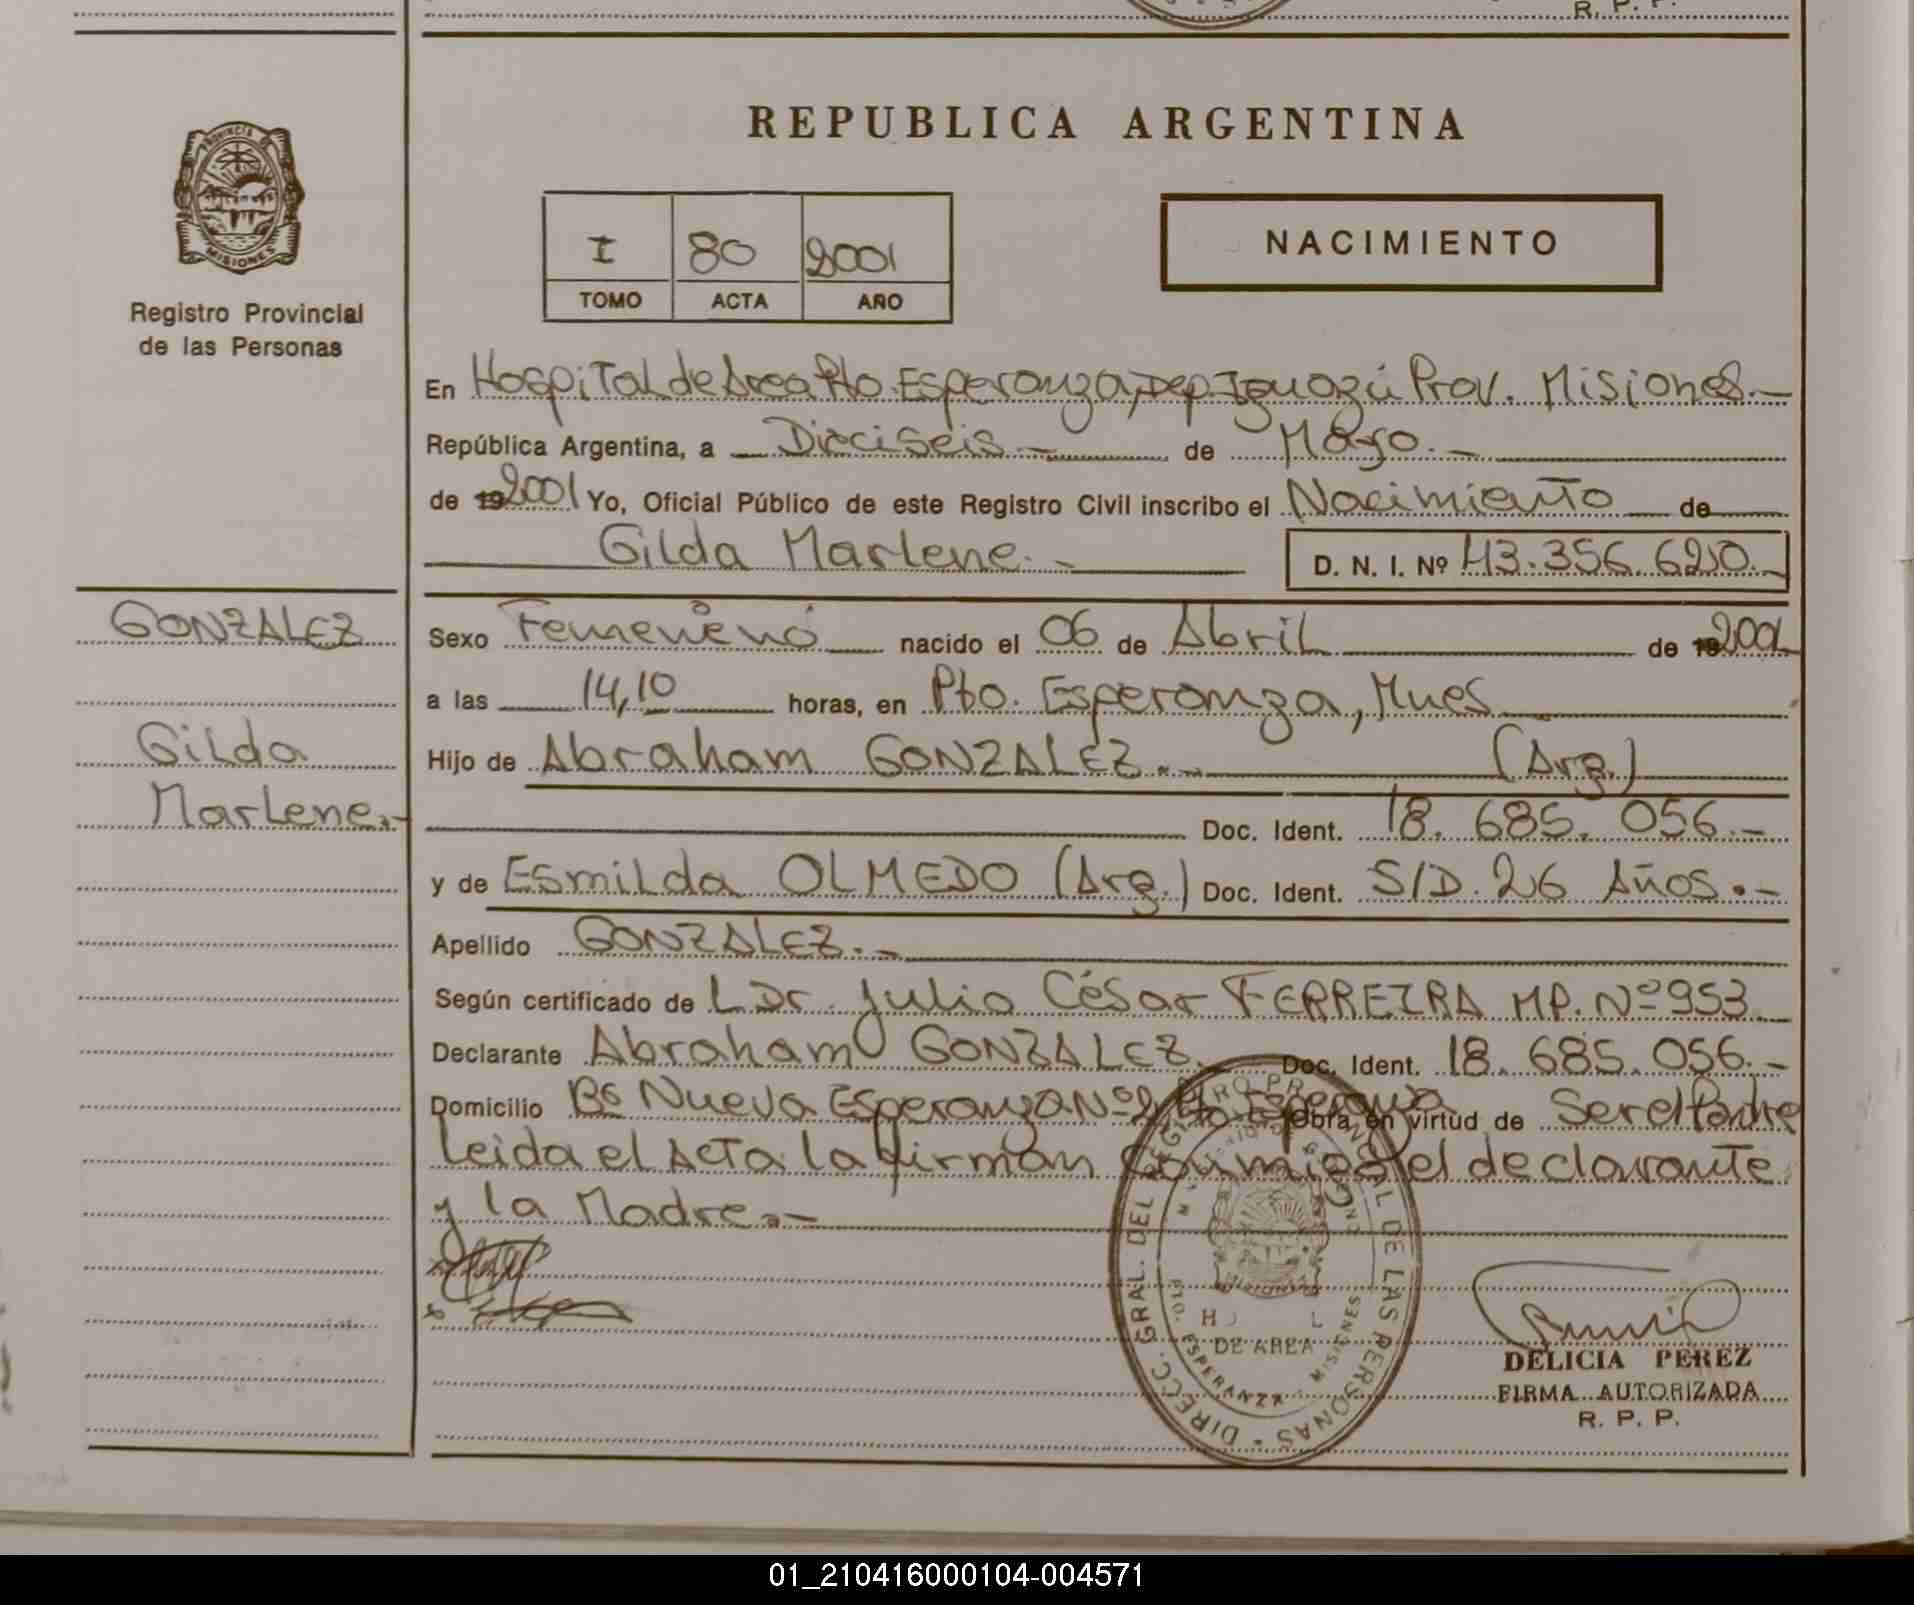 R. P. P.
REPUBLICA ARGENTINA
PROVINCIA
MISIONES
Registro Provincial
de las Personas
I 80 2001
TOMO ACTA AÑO
NACIMIENTO
En Hospital de Area Pto. Esperanza, Dep. Iguazú Prov. Misiones.-
República Argentina, a Dieciseis.- de Mayo.-
de 192001 Yo, Oficial Público de este Registro Civil inscribo el Nacimiento de
Gilda Marlene.- D. N. I. Nº 43.356.620.-
GONZALEZ
Gilda
Marlene.-
Sexo Femenino nacido el 06 de Abril de 192001
a las 14,10 horas, en Pto. Esperanza, Mnes
Hijo de Abraham GONZALEZ.- (Arg.)
Doc. Ident. 18.685.056.-
y de Esmilda OLMEDO (Arg.) Doc. Ident. S/D. 26 Años.-
Apellido GONZALEZ.-
Según certificado de L Dr. Julio César FERREIRA MP. Nº 953
Declarante Abraham GONZALEZ. Doc. Ident. 18.685.056.-
Domicilio Bº Nueva Esperanza Nº Pto Esperanza Obra en virtud de Ser el Padre
Leida el Acta la firman conmigo el declarante
y la Madre.-
DIRECC. GRAL. DEL REGISTRO PROVINCIAL DE LAS PERSONAS
DE AREA
PTO. ESPERANZA MISIONES
DELICIA PEREZ
FIRMA AUTORIZADA
R. P. P.
01_210416000104-004571